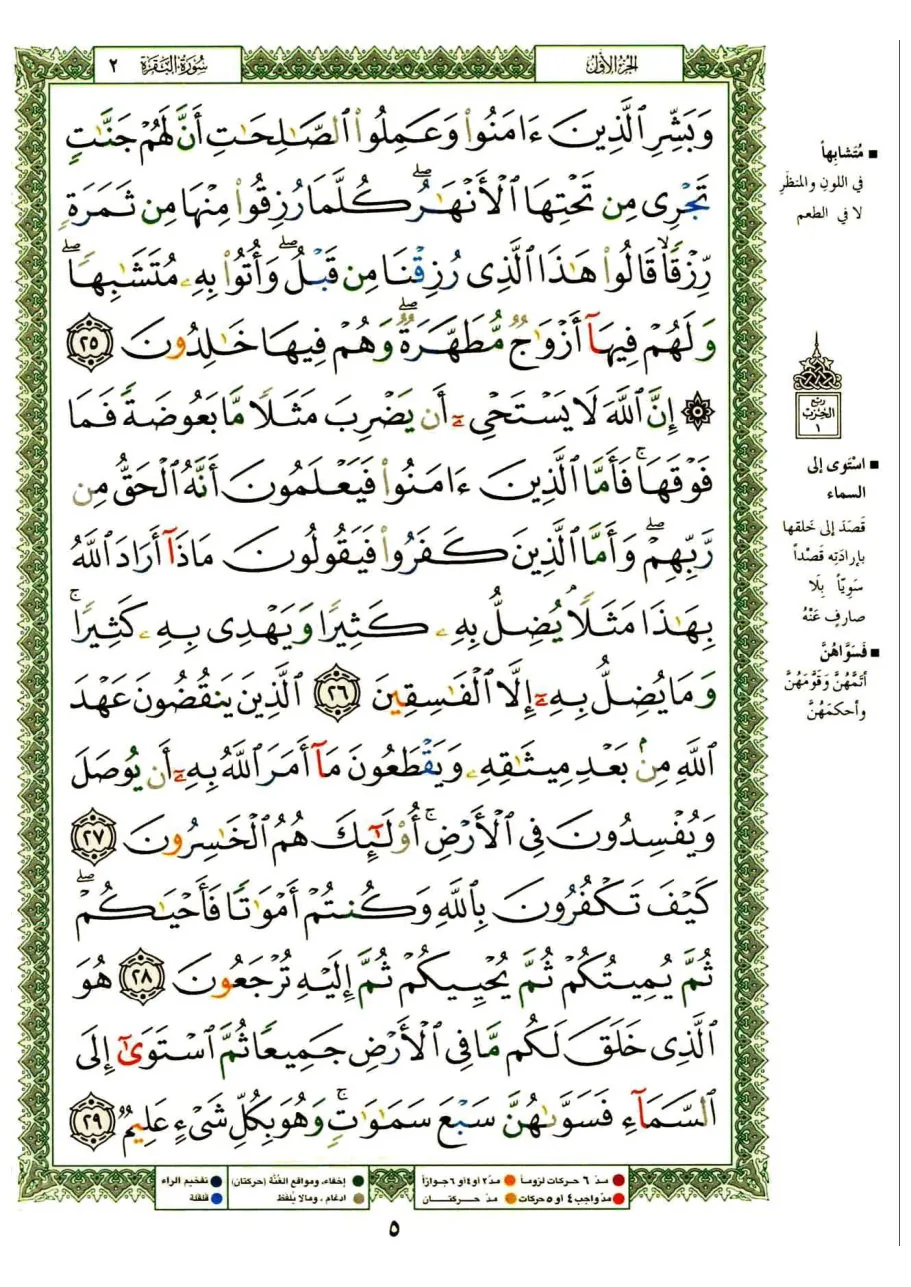 الجزء الأول
سورة البقرة ٢
وَبَشِّرِ ٱلَّذِينَ ءَامَنُوا۟ وَعَمِلُوا۟ ٱلصَّٰلِحَٰتِ أَنَّ لَهُمْ جَنَّٰتٍ
تَجْرِى مِن تَحْتِهَا ٱلْأَنْهَٰرُ ۖ كُلَّمَا رُزِقُوا۟ مِنْهَا مِن ثَمَرَةٍ
رِّزْقًا ۙ قَالُوا۟ هَٰذَا ٱلَّذِى رُزِقْنَا مِن قَبْلُ ۖ وَأُتُوا۟ بِهِۦ مُتَشَٰبِهًا ۖ
وَلَهُمْ فِيهَآ أَزْوَٰجٌ مُّطَهَّرَةٌ ۖ وَهُمْ فِيهَا خَٰلِدُونَ ٢٥
۞ إِنَّ ٱللَّهَ لَا يَسْتَحْىِۦٓ أَن يَضْرِبَ مَثَلًا مَّا بَعُوضَةً فَمَا
فَوْقَهَا ۚ فَأَمَّا ٱلَّذِينَ ءَامَنُوا۟ فَيَعْلَمُونَ أَنَّهُ ٱلْحَقُّ مِن
رَّبِّهِمْ ۖ وَأَمَّا ٱلَّذِينَ كَفَرُوا۟ فَيَقُولُونَ مَاذَآ أَرَادَ ٱللَّهُ
بِهَٰذَا مَثَلًا ۘ يُضِلُّ بِهِۦ كَثِيرًا وَيَهْدِى بِهِۦ كَثِيرًا ۚ
وَمَا يُضِلُّ بِهِۦٓ إِلَّا ٱلْفَٰسِقِينَ ٢٦ ٱلَّذِينَ يَنقُضُونَ عَهْدَ
ٱللَّهِ مِنۢ بَعْدِ مِيثَٰقِهِۦ وَيَقْطَعُونَ مَآ أَمَرَ ٱللَّهُ بِهِۦٓ أَن يُوصَلَ
وَيُفْسِدُونَ فِى ٱلْأَرْضِ ۚ أُو۟لَٰٓئِكَ هُمُ ٱلْخَٰسِرُونَ ٢٧
كَيْفَ تَكْفُرُونَ بِٱللَّهِ وَكُنتُمْ أَمْوَٰتًا فَأَحْيَٰكُمْ ۖ
ثُمَّ يُمِيتُكُمْ ثُمَّ يُحْيِيكُمْ ثُمَّ إِلَيْهِ تُرْجَعُونَ ٢٨ هُوَ
ٱلَّذِى خَلَقَ لَكُم مَّا فِى ٱلْأَرْضِ جَمِيعًا ثُمَّ ٱسْتَوَىٰٓ إِلَى
ٱلسَّمَآءِ فَسَوَّىٰهُنَّ سَبْعَ سَمَٰوَٰتٍ ۚ وَهُوَ بِكُلِّ شَىْءٍ عَلِيمٌ ٢٩
■ مُتَشابِهاً
في اللونِ والمنظَرِ
لا في الطعم
ربع
الحزب
١
■ اسْتَوى إلى
السماء
قَصَدَ إلى خَلقها
بإرادَتِه قَصْداً
سَوِيّاً بِلَا
صارفٍ عَنْهُ
■ فَسَوَّاهُنَّ
أتَمَّهُنَّ وَقَوَّمَهُنَّ
وأحكمَهُنَّ
● مدّ ٦ حركات لزوماً ● مدّ ٢ او ٤ او ٦ جوازاً
● مدّ واجب ٤ او ٥ حركات ● مدّ حركتان
● إخفاء، ومواقع الغُنَّة (حركتان)
● ادغام، ومالا يُلفَظ
● تفخيم الراء
● قلقلة
٥